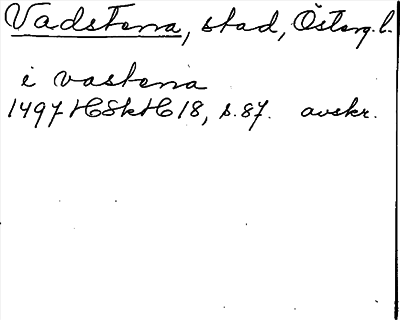 Vadstena, stad, Österg. l.
i vastena
1497 HSkH 18, s. 87. avskr.